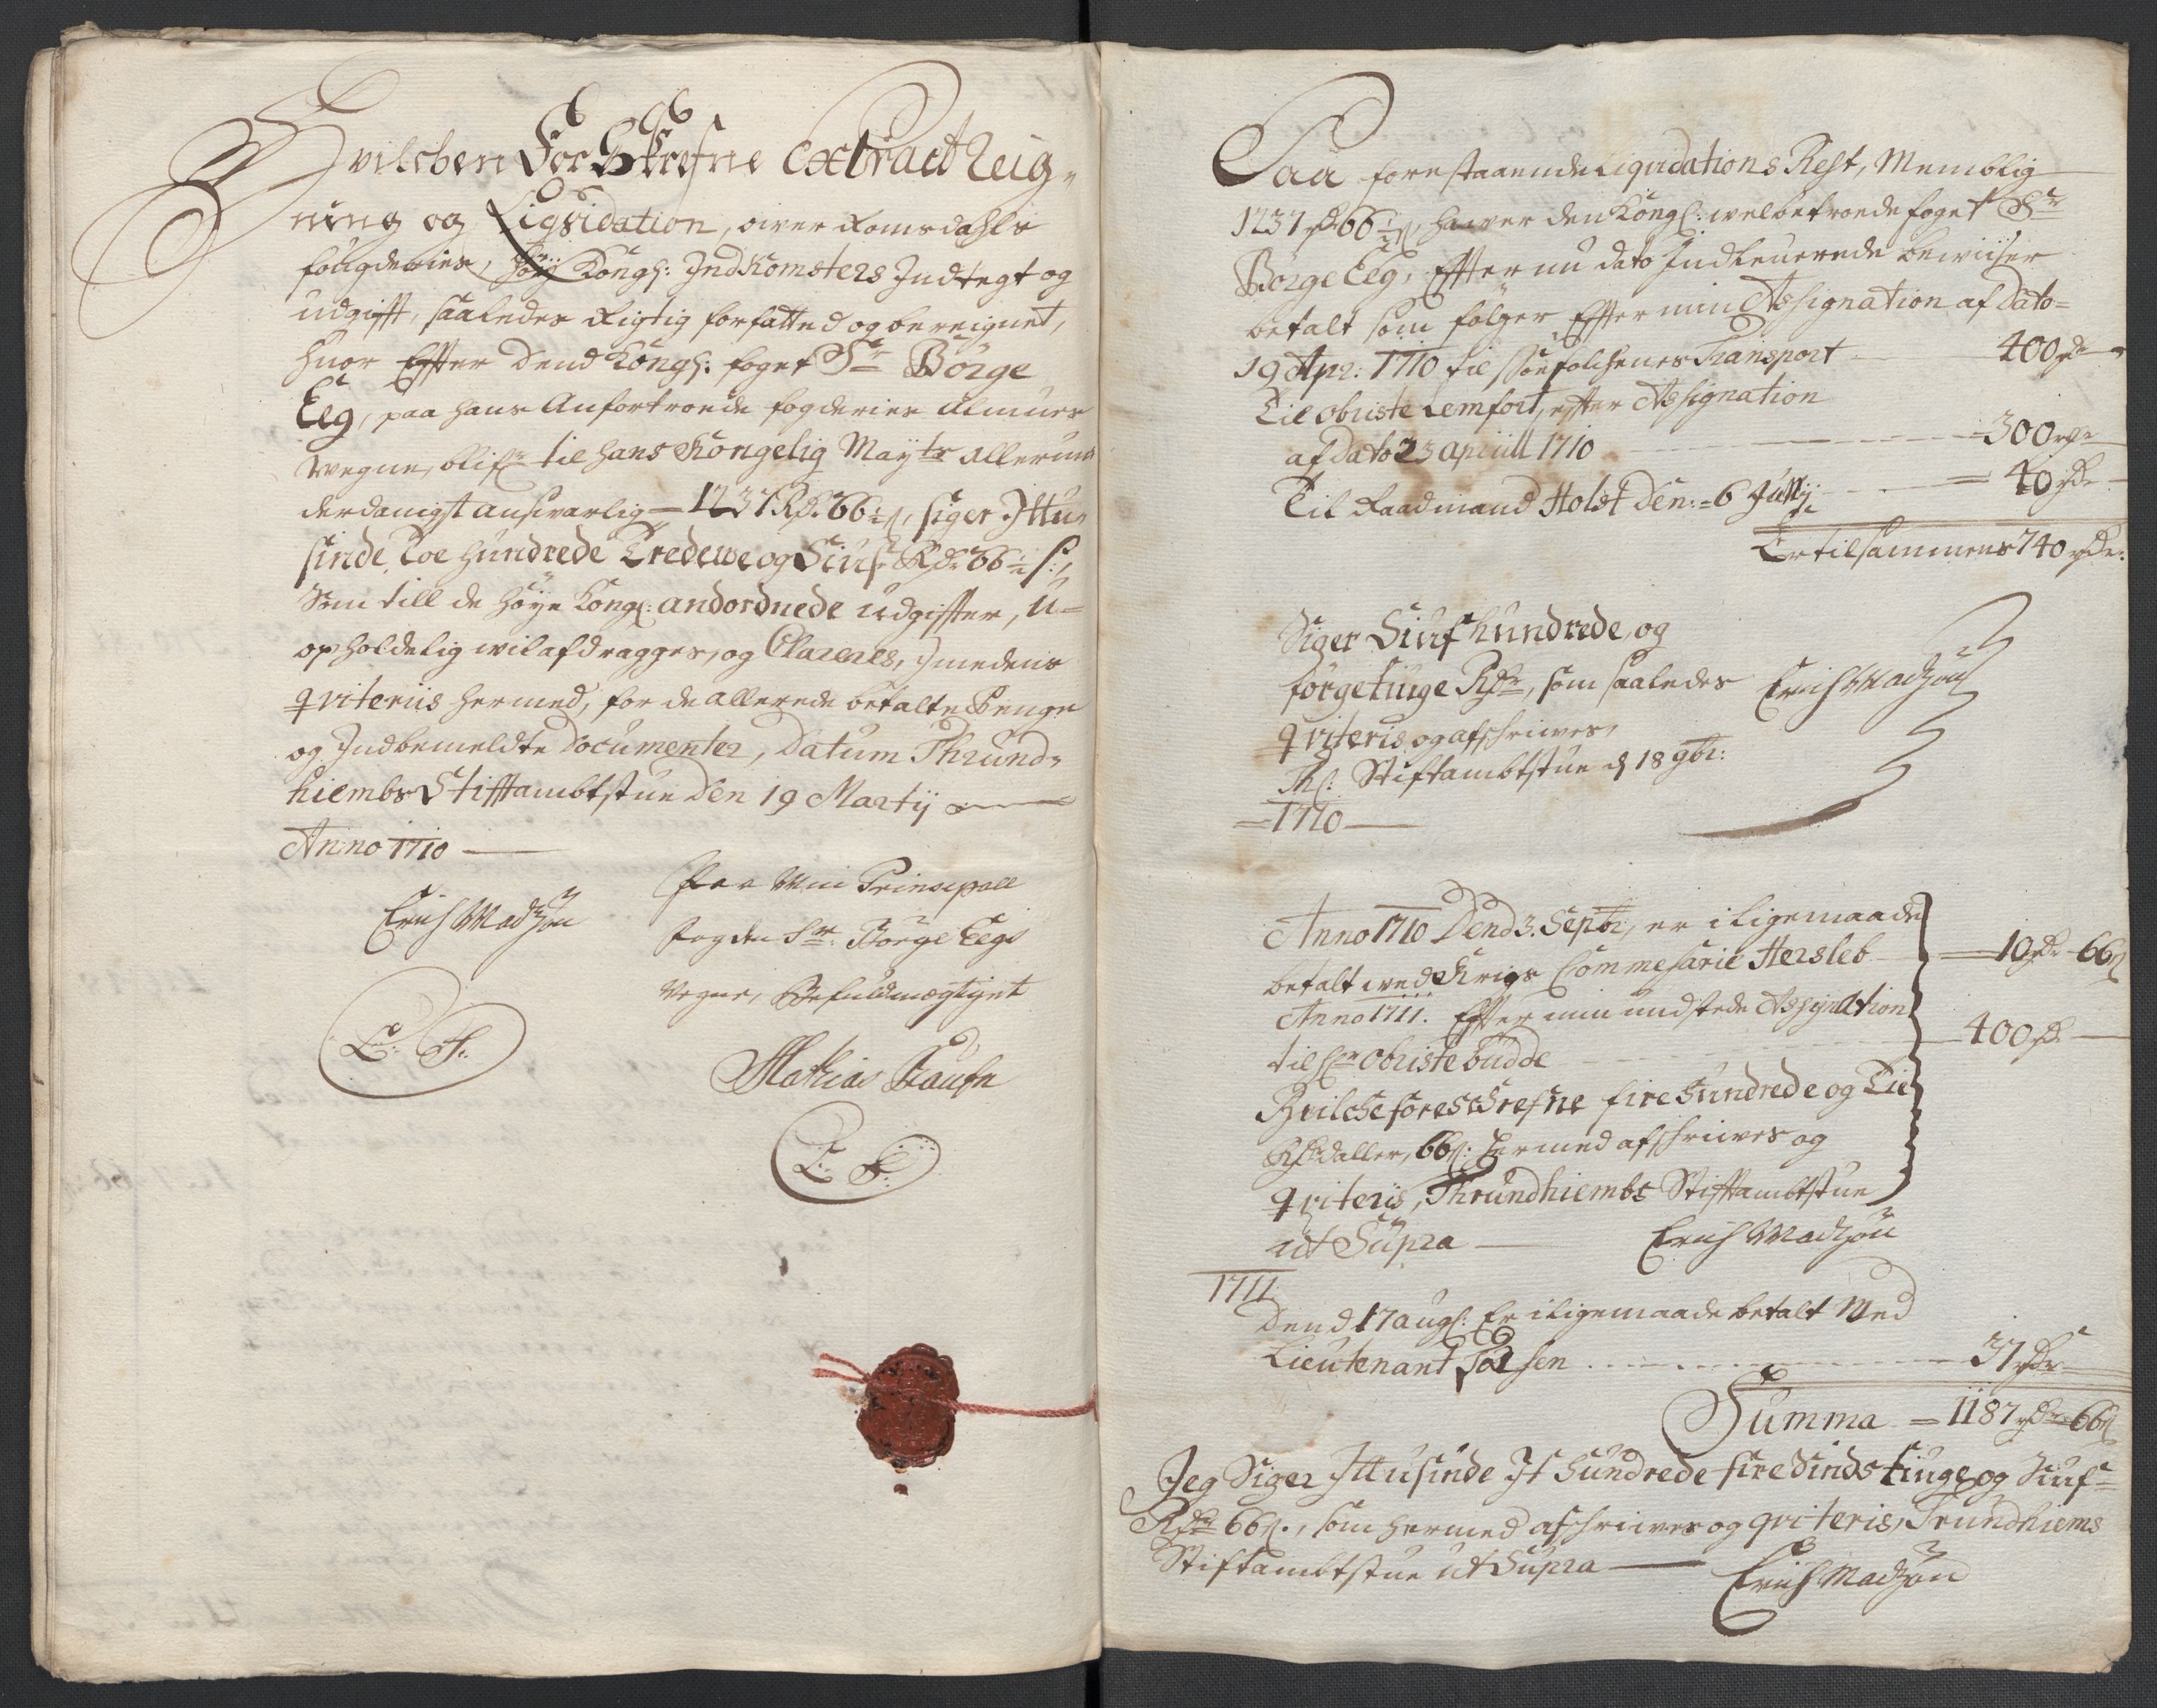 Hvilchen ForSkrefne Extract Reig-
ning og Liqvidation, ower Romsdahls
fougderies, Höy Kongl: Indkomsters Indtegt og
udgifft, saaledes Rigtig forfatted og bereignet,
huor Effter dend Kongl: foget Sr Börge
Eeg, paa hans Anfortroede fogderies Almues
wegne, blifr til hans Kongelig Mayts allerun
derdanigst answarlig = 1237 Rdr 66½ s, siger Ittu-
sinde, Toe hundrede Tredewe og Siuf Rdr 66½ s:,
Som till de höye Kongl: andordnede udgiffter, U-
opholdelig wil afdragges, og Clareres, Imedens
qviteriis hermed, for de allerede betalte Penge
og Indbemeldte Documenter, Datum Thrund-
hiembs Stifftambtstue den 19 Martij
Anno 1710
Erich Madzön
Paa Min Prinsepall
fogden Sr: Börge Eegs
Vegne, Befuldmegtiget
Mathias
L: S:
L: S:
Paa forestaaende Liqvidations Rest, Nemblig
1237 rd 66½ s, hawer den Kongl: welbetroede foget Sr
Börge Eeg, Effter nu dato Indleuerede bewiiser
betalt som fölger Effter min Assignation af dato=
19 Apr: 1710 til Söefolchenes Transport — 400 rdr
Til obriste Lemfort, effter Assignation
af dato 23 aprill 1710 — 300 rdr
Til Raadmand Holst den: 6 Julij — = 40 rdr
Er tilsammens 740 rdr:
Siger Siuf hundrede, og
förgetiuge Rdr, som saaledes
Erich Madzön
qviteris og afschriwes,
Thr: Stiftambtstue d 18 9br:
=1710
Anno 1710 Dend 3. Septbr, er i ligemaade
betalt wed Krigs Commesarie Hersleb — 10 rdr 66 s
Anno 1711. Effter min uudstede Assignation
til Hr Obriste Budde — 400 rdr
Hvilche foreschrefne fire hundrede og Tie
Rixdaller, 66 s: hermed afschriwes og
qviteris, Thrundhiembs Stifftambtstue
ut Supra — Erich Madzön
1711
Dend 17 augs: Er iligemaade betalt Med
Lieutenant Poilsen — 37 rdr
Summa = 1187 rdr 66 s
Jeg Siger Ittusinde It hundrede firesindstiuge og Siuf=
Rdr 66 s:, som hermed afschriwes og qviteris, Trundhiems
Stiftambtstue ut Supra — Erich Madzön